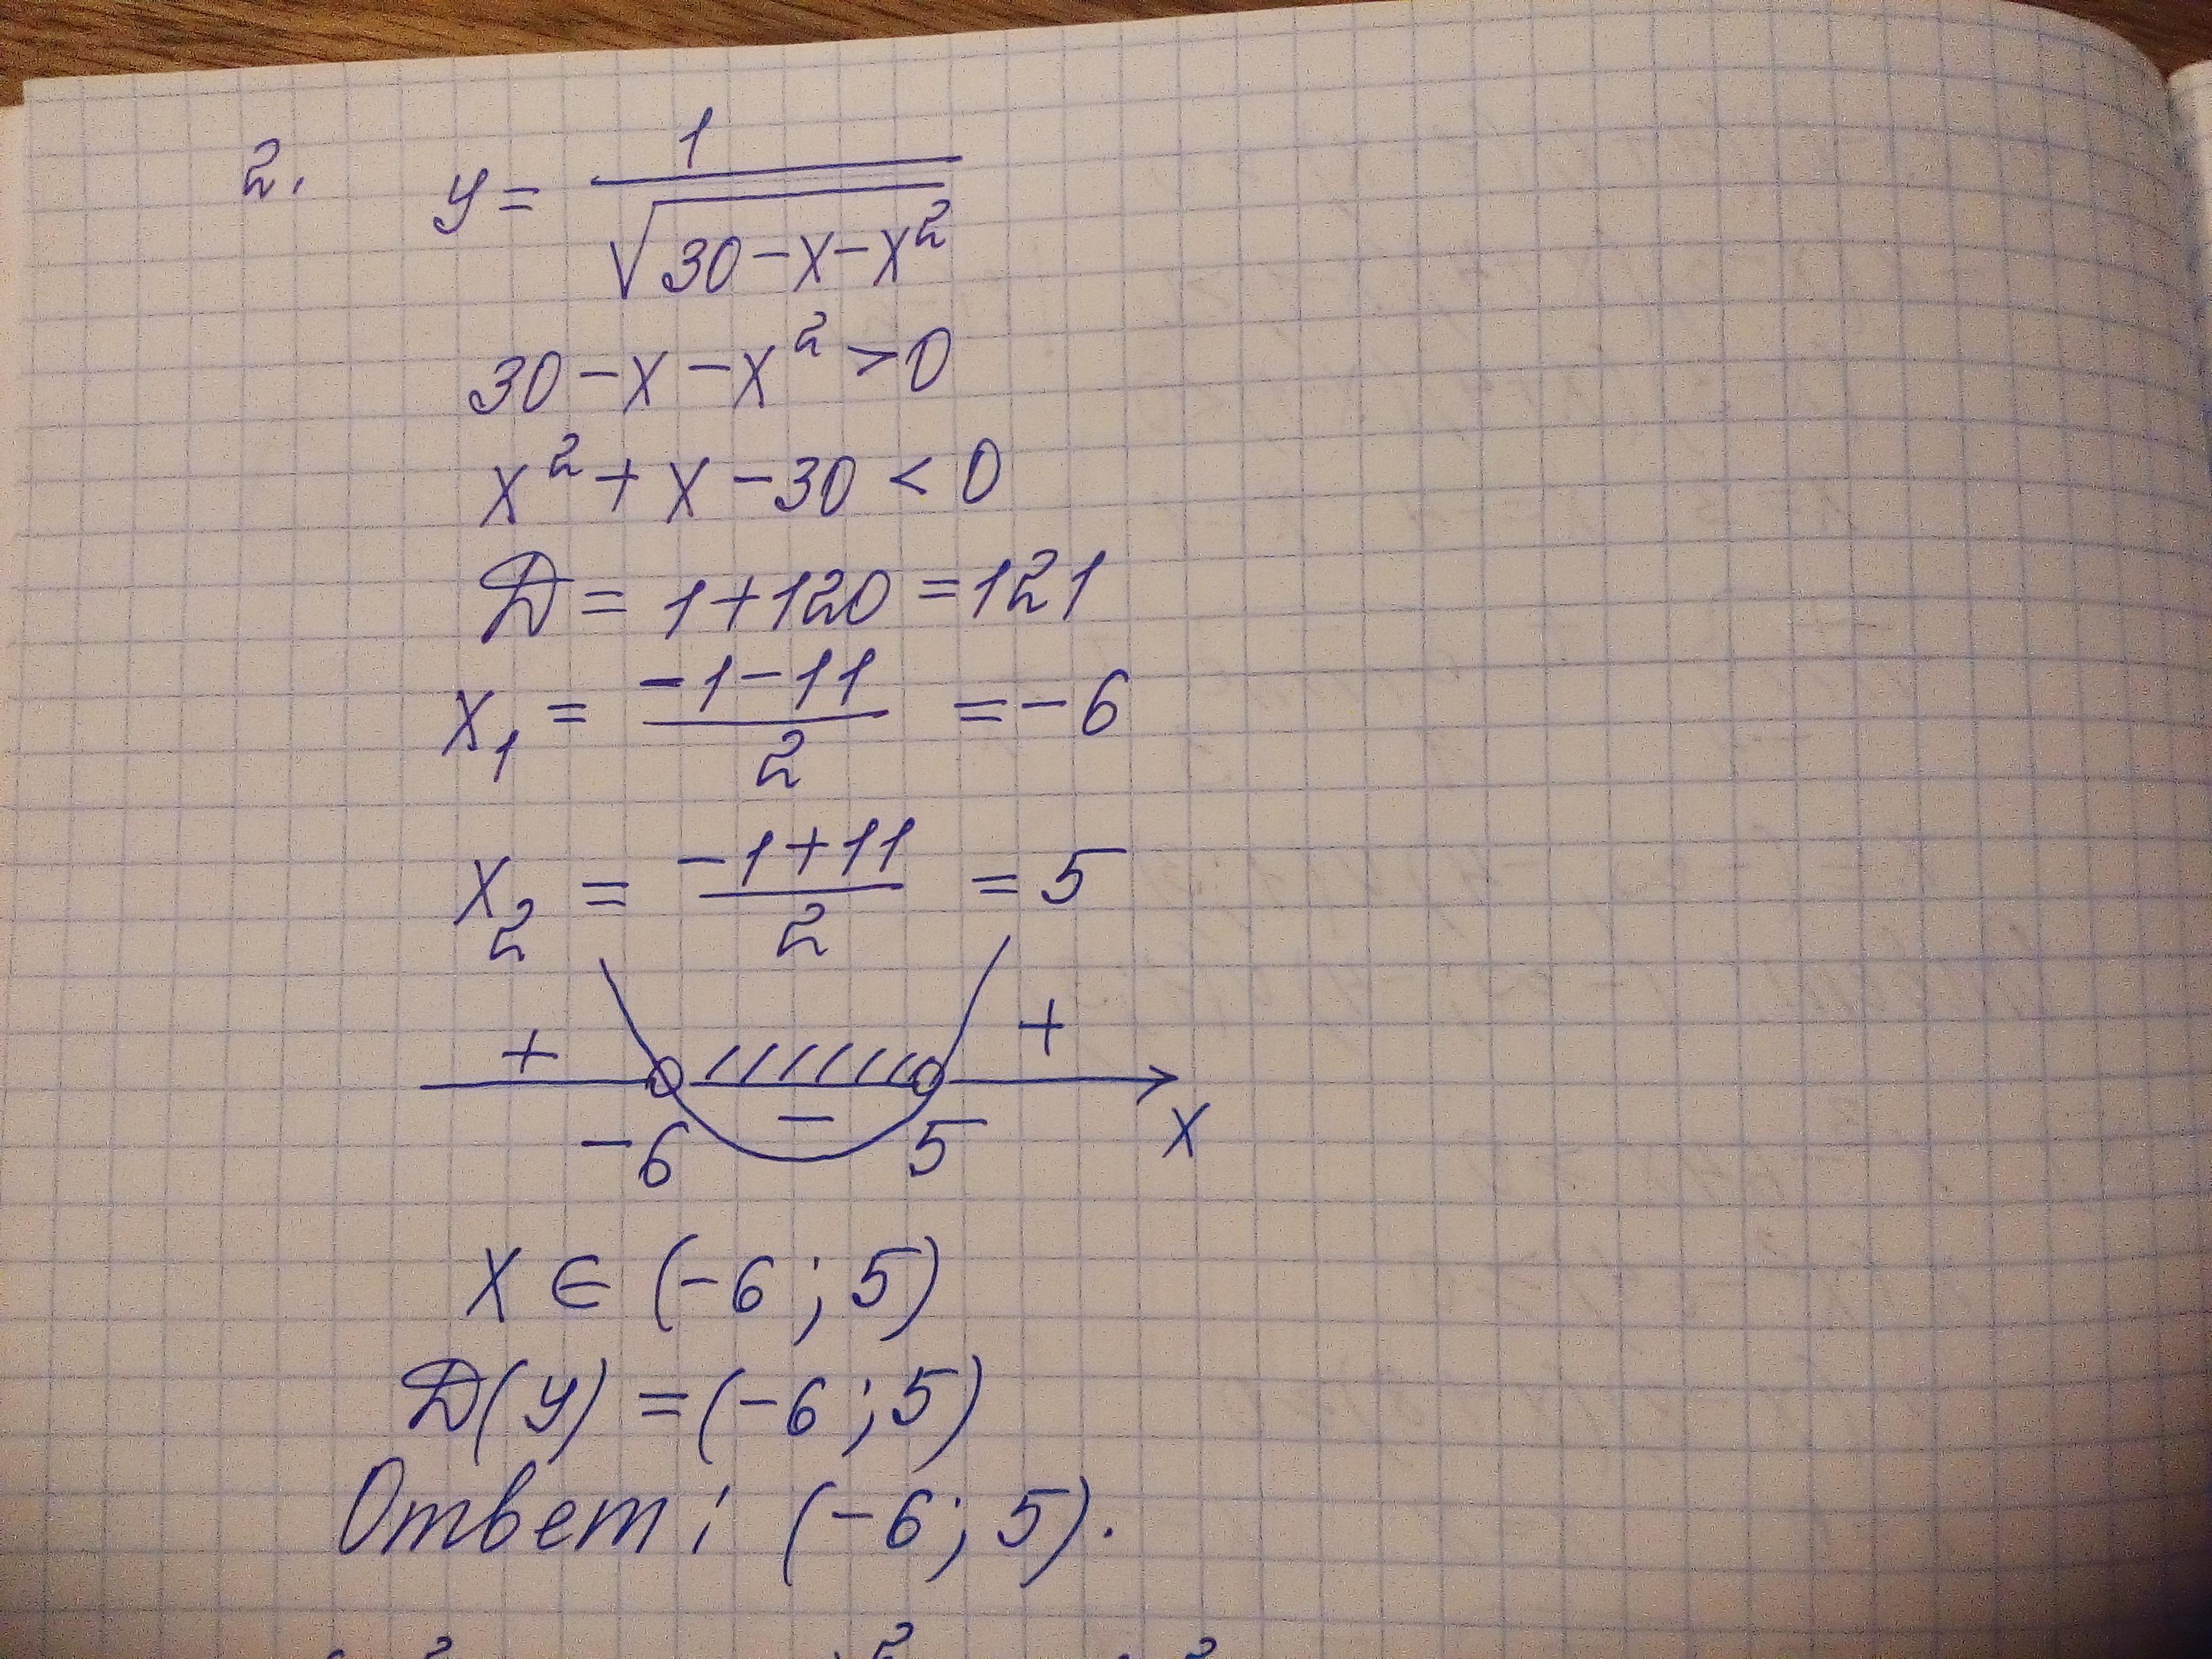 2. y = 1/√(30-x-x²)
30-x-x²>0
x²+x-30<0
Д = 1+120=121
x₁ = (-1-11)/2 = -6
x₂ = (-1+11)/2 = 5
+ - +
-6 5 x
x ∈ (-6; 5)
Д(y) = (-6; 5)
Ответ: (-6; 5).